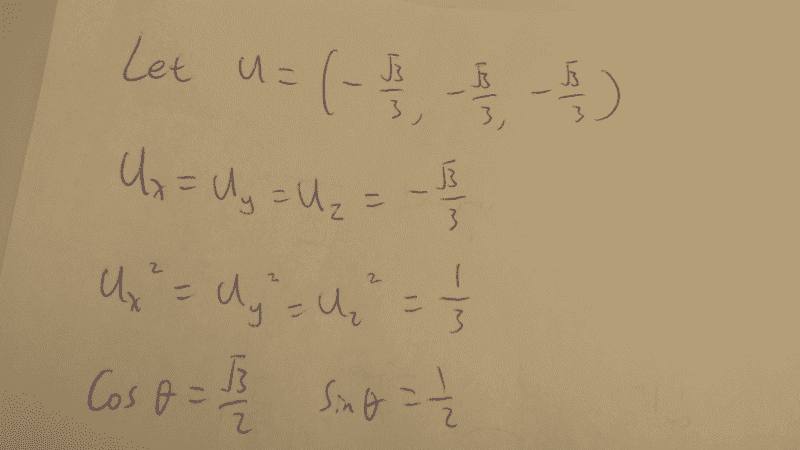 Let u = (-√3/3, -√3/3, -√3/3)
Ux = Uy = Uz = -√3/3
Ux² = Uy² = Uz² = 1/3
Cos θ = √3/2 Sin θ = 1/2